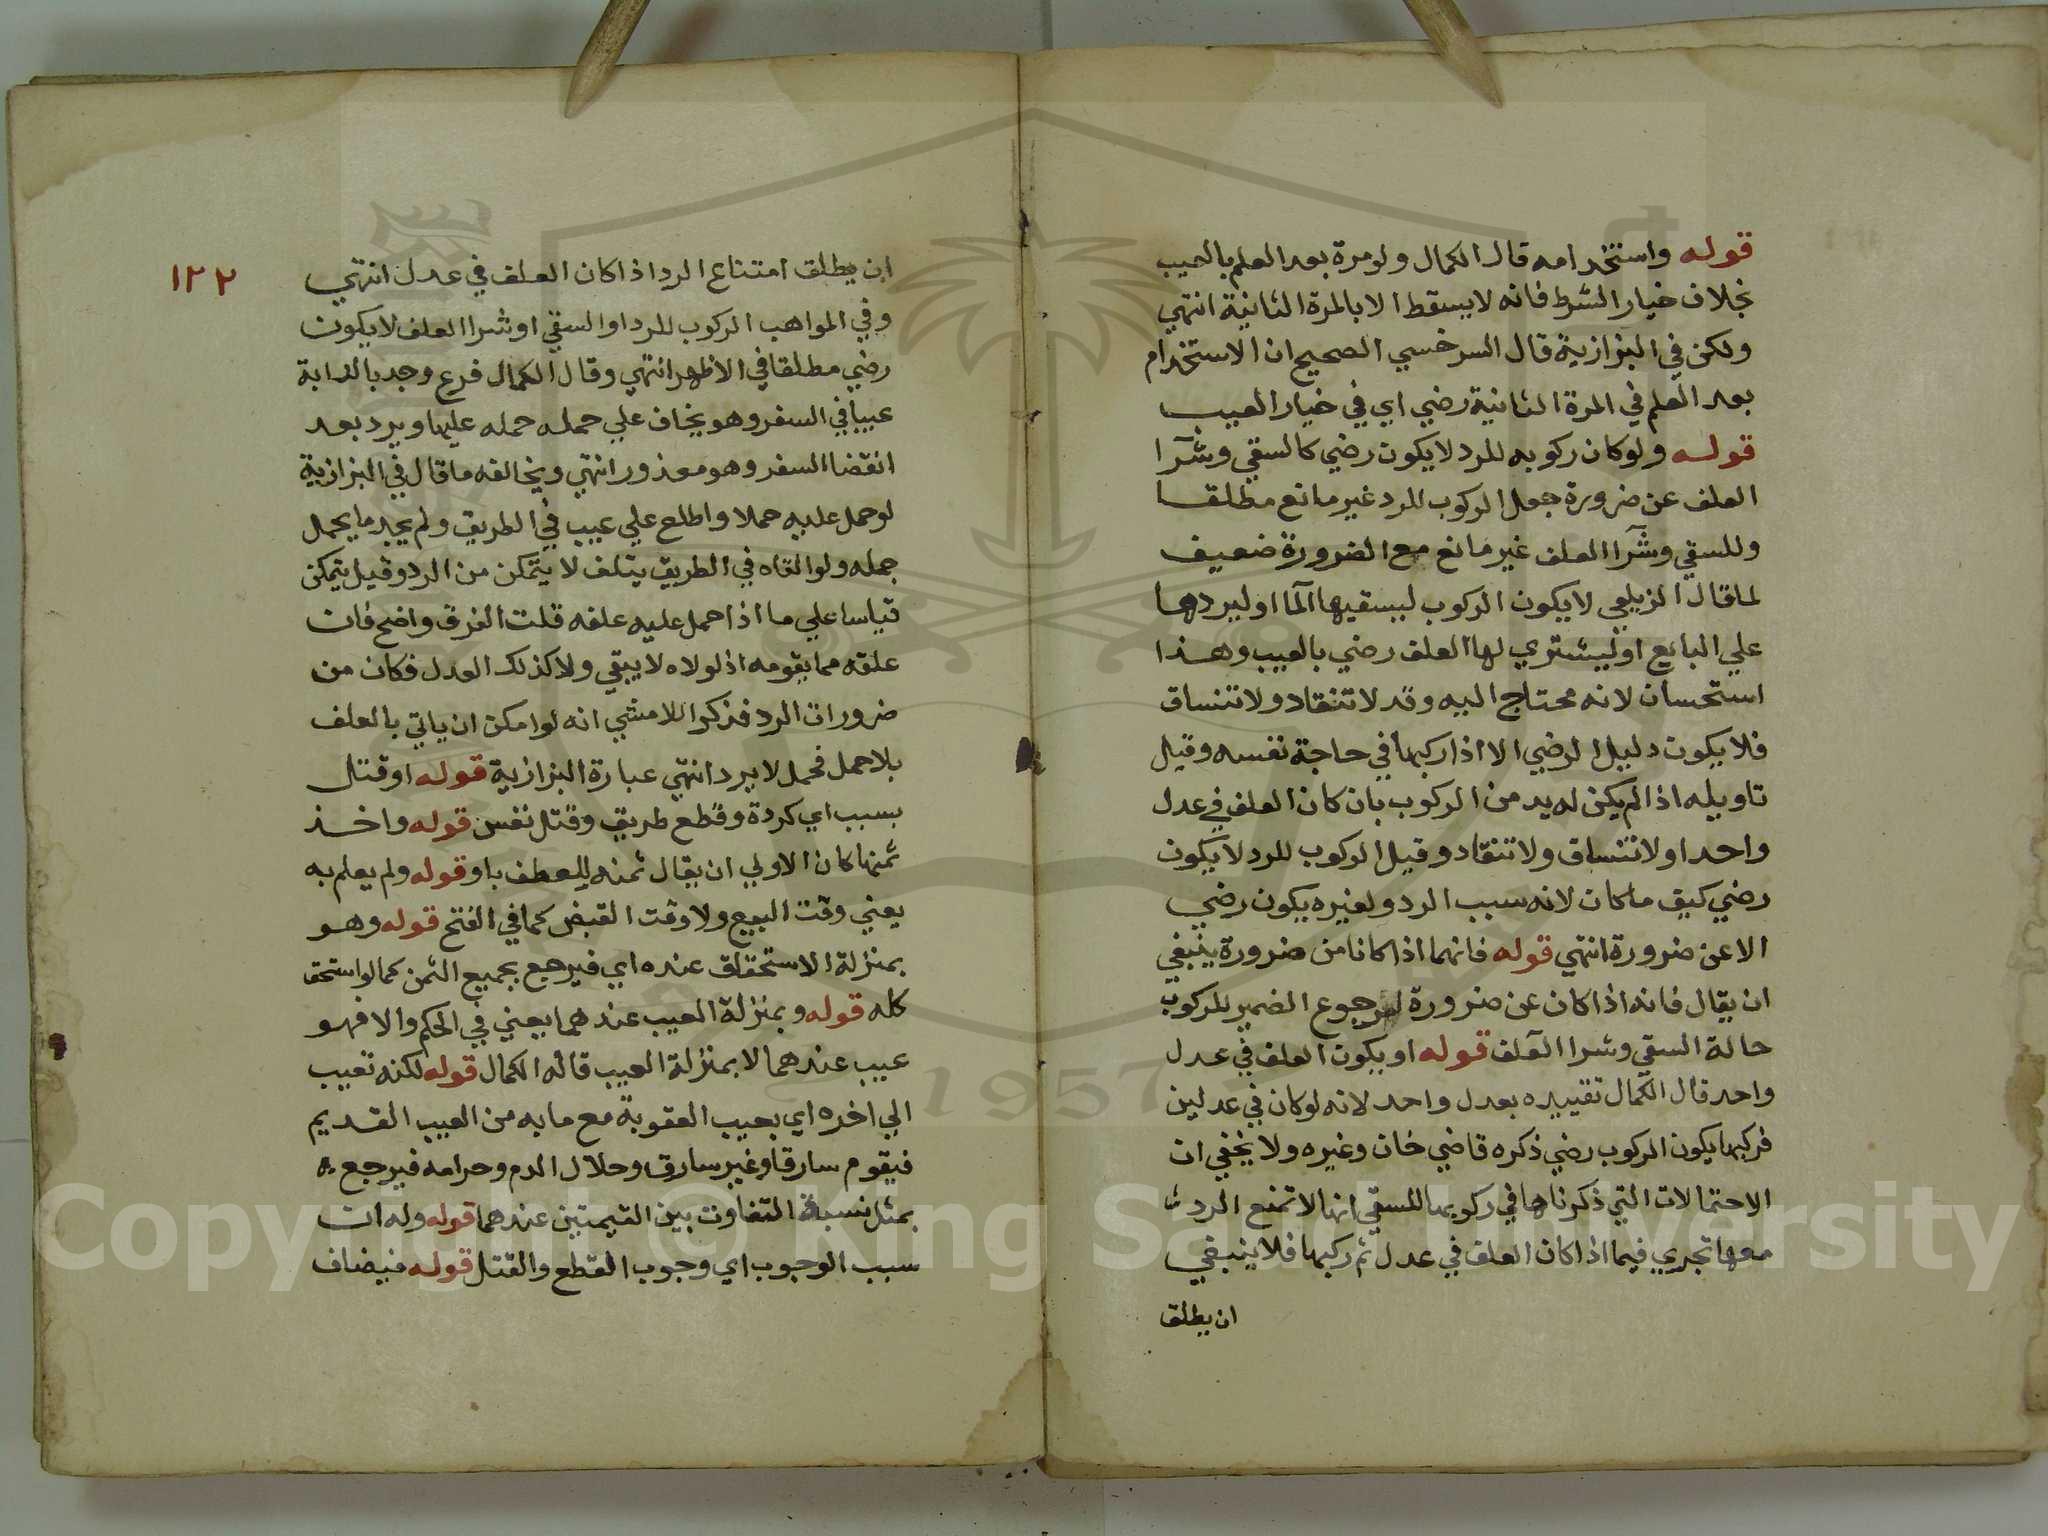 قوله واستخدامه قال الكمال ولو مرة بعد العلم بالعيب
بخلاف خيار الشرط فانه لا يسقط الا بالمرة الثانية انتهي
ولكن في البزازية قال السرخسي الصحيح ان الاستخدام
بعد العلم في المرة الثانية رضي اي في خيار العيب
قوله ولو كان ركوبه للرد لا يكون رضي كالسقي وشرآ
العلف عن ضرورة جعل الركوب للرد غير مانع مطلقا
وللسقي وشرآ العلف غير مانع مع الضرورة ضعيف
لما قال الزيلعي لا يكون الركوب ليسقيها المآ او ليردها
علي البايع او ليشتري لها العلف رضي بالعيب وهذا
استحسان لانه محتاج اليه وقد لا تنقاد ولا تنساق
فلا يكون دليل الرضي الا اذا ركبها في حاجة نفسه وقيل
تاويله اذا لم يكن له بد من الركوب بان كان العلف في عدل
واحد او لا تنساق ولا تنقاد وقيل الركوب للرد لا يكون
رضي كيف ما كان لانه سبب الرد ولغيره يكون رضي
الا عن ضرورة انتهي قوله فانهما اذا كانا من ضرورة ينبغي
ان يقال فانه اذا كان عن ضرورة لرجوع الضمير للركوب
حالة السقي وشرا العلف قوله او يكون العلف في عدل
واحد قال الكمال تقييده بعدل واحد لانه لو كان في عدلين
فركبها يكون الركوب رضي ذكره قاضي خان وغيره ولا يخفي ان
الاحتمالات التي ذكرناها في ركوبها للسقي انها لا تمنع الرد
معها تجري فيما اذا كان العلف في عدل ثم ركبها فلا ينبغي
ان يطلق
١٢٢
ان يطلق امتناع الرد اذا كان العلف في عدل انتهي
وفي المواهب الركوب للرد او السقي او شرا العلف لا يكون
رضي مطلقا في الاظهر انتهي وقال الكمال فرع وجد بالدابة
عيبا في السفر وهو يخاف علي حمله حمله عليها ويرد بعد
انقضا السفر وهو معذور انتهي ويخالفه ما قال في البزازية
لو حمل عليه حملا واطلع علي عيب في الطريق ولم يجد ما يحمل
حمله ولو القاه في الطريق يتلف لا يتمكن من الرد وقيل يتمكن
قياسا علي ما اذا حمل عليه علفه قلت الفرق واضح فان
علفه مما يقومه اذ لولاه لا يبقي ولا كذلك العدل فكان من
ضرورات الرد فذكر اللامشي انه لو امكن ان ياتي بالعلف
بلا حمل فحمل لا يرد انتهي عبارة البزازية قوله او قتل
بسبب اي كردة وقطع طريق وقتل نفس قوله واخذ
ثمنها كان الاولي ان يقال ثمنه للعطف باو قوله ولم يعلم به
يعني وقت البيع ولا وقت القبض كما في الفتح قوله وهو
بمنزلة الاستحقاق عنده اي فيرجع بجميع الثمن كما لو استحق
كله قوله وبمنزلة العيب عندهما يعني في الحكم والا فهو
عيب عندهما لا بمنزلة العيب قاله الكمال قوله لكنه تعيب
الي اخره اي بعيب العقوبة مع ما به من العيب القديم
فيقوم سارقا وغير سارق وحلال الدم وحرامه فيرجع
بمثل نسبة التفاوت بين القيمتين عندهما قوله وله ان
سبب الوجوب اي وجوب القطع والقتل قوله فيضاف
Copyright © King Saud University
1957